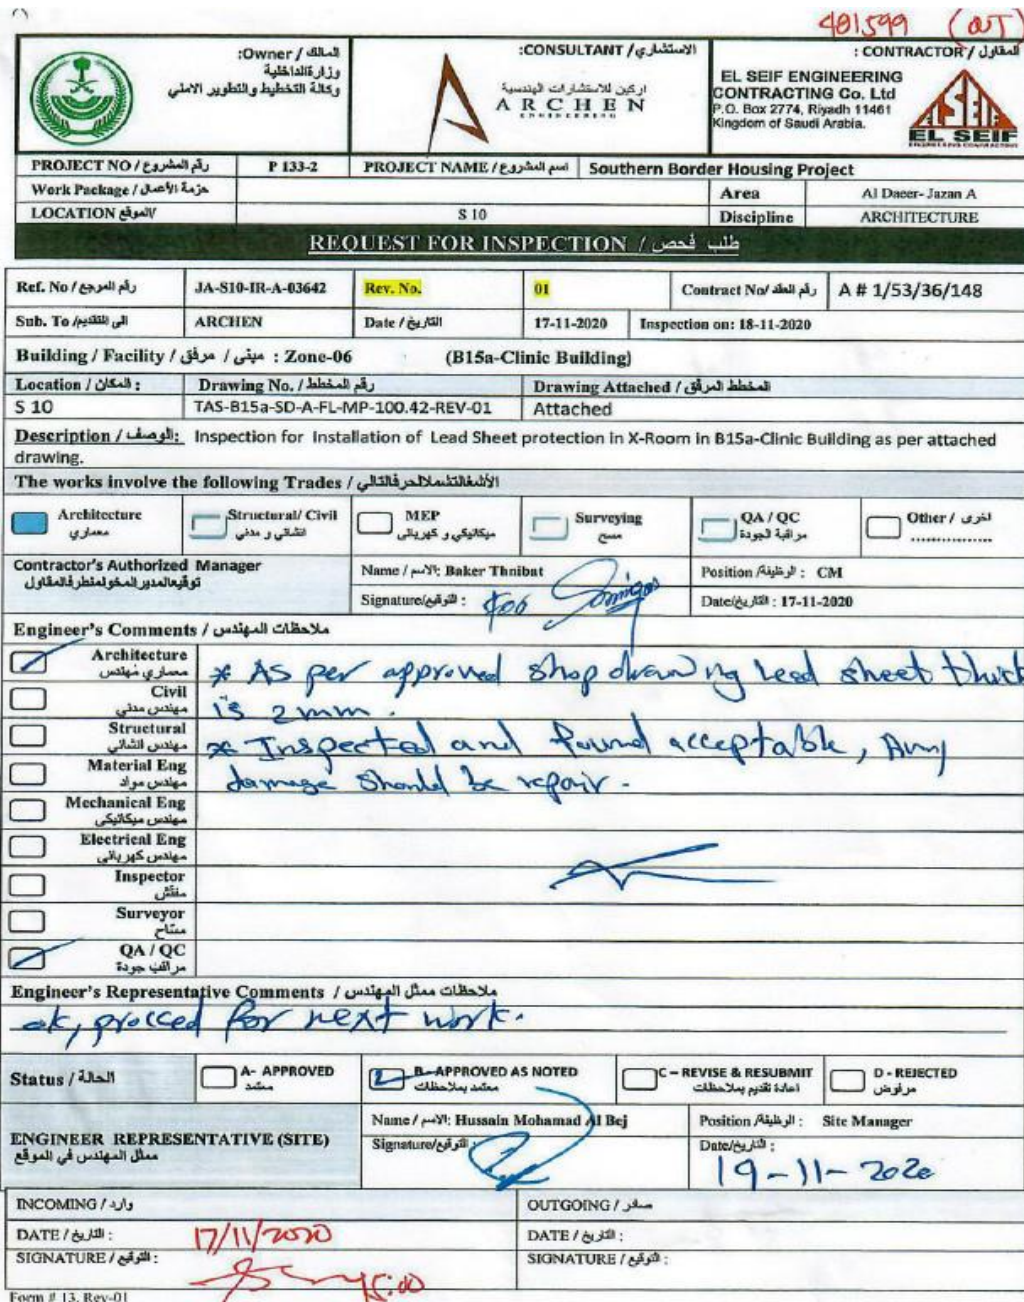 481599 (OUT)
المالك / Owner:
وزارةالداخلية
وكالة التخطيط والتطوير الامني
الاستشاري / CONSULTANT:
اركين للاستشارات الهندسية
ARCHEN
ENGINEERING
المقاول / CONTRACTOR :
EL SEIF ENGINEERING
CONTRACTING Co. Ltd
P.O. Box 2774, Riyadh 11461
Kingdom of Saudi Arabia.
EL SEIF
ENGINEERING CONTRACTING
PROJECT NO / رقم المشروع P 133-2 PROJECT NAME / اسم المشروع Southern Border Housing Project
Work Package / حزمة الأعمال Area Al Daeer- Jazan A
LOCATION الموقع/ S 10 Discipline ARCHITECTURE
REQUEST FOR INSPECTION / طلب فحص
Ref. No / رقم المرجع JA-S10-IR-A-03642 Rev. No. 01 Contract No/ رقم العقد A # 1/53/36/148
Sub. To /الى للتقديم ARCHEN Date / التاريخ 17-11-2020 Inspection on: 18-11-2020
Building / Facility / مبنى / مرفق : Zone-06 (B15a-Clinic Building)
Location / المكان : Drawing No. / رقم المخطط Drawing Attached / المخطط المرفق
S 10 TAS-B15a-SD-A-FL-MP-100.42-REV-01 Attached
Description / الوصف: Inspection for Installation of Lead Sheet protection in X-Room in B15a-Clinic Building as per attached
drawing.
The works involve the following Trades /
Architecture معماري Structural/ Civil انشائي و مدني MEP ميكانيكي و كهربائي Surveying مسح QA / QC مراقبة الجودة Other / اخرى ................
Contractor's Authorized Manager Name / الاسم: Baker Thnibat Position /الوظيفة : CM
Signature/التوقيع : Date/التاريخ : 17-11-2020
Engineer's Comments / ملاحظات المهندس
Architecture معماري مهندس
* As per approved shop drawing lead sheet thick
Civil مهندس مدني
is 2mm.
Structural مهندس انشائي
* Inspected and found acceptable, Any
Material Eng مهندس مواد
damage should be repair.
Mechanical Eng
مهندس ميكانيكي
Electrical Eng
مهندس كهربائي
Inspector
مفتش
Surveyor
مساح
QA / QC
مراقب جودة
Engineer's Representative Comments / ملاحظات ممثل المهندس
ok, procced for next work.
Status / الحالة A- APPROVED معتمد B- APPROVED AS NOTED معتمد بملاحظات C – REVISE & RESUBMIT اعادة تقديم بملاحظات D - REJECTED مرفوض
ENGINEER REPRESENTATIVE (SITE)
ممثل المهندس في الموقع
Name / الاسم: Hussain Mohamad Al Bej Position /الوظيفة : Site Manager
Signature/التوقيع : Date/التاريخ :
19-11-2020
INCOMING / وارد OUTGOING / صادر
DATE / التاريخ : 17/11/2020 DATE / التاريخ :
SIGNATURE / التوقيع : 15:00 SIGNATURE / التوقيع :
Form # 13, Rev-01